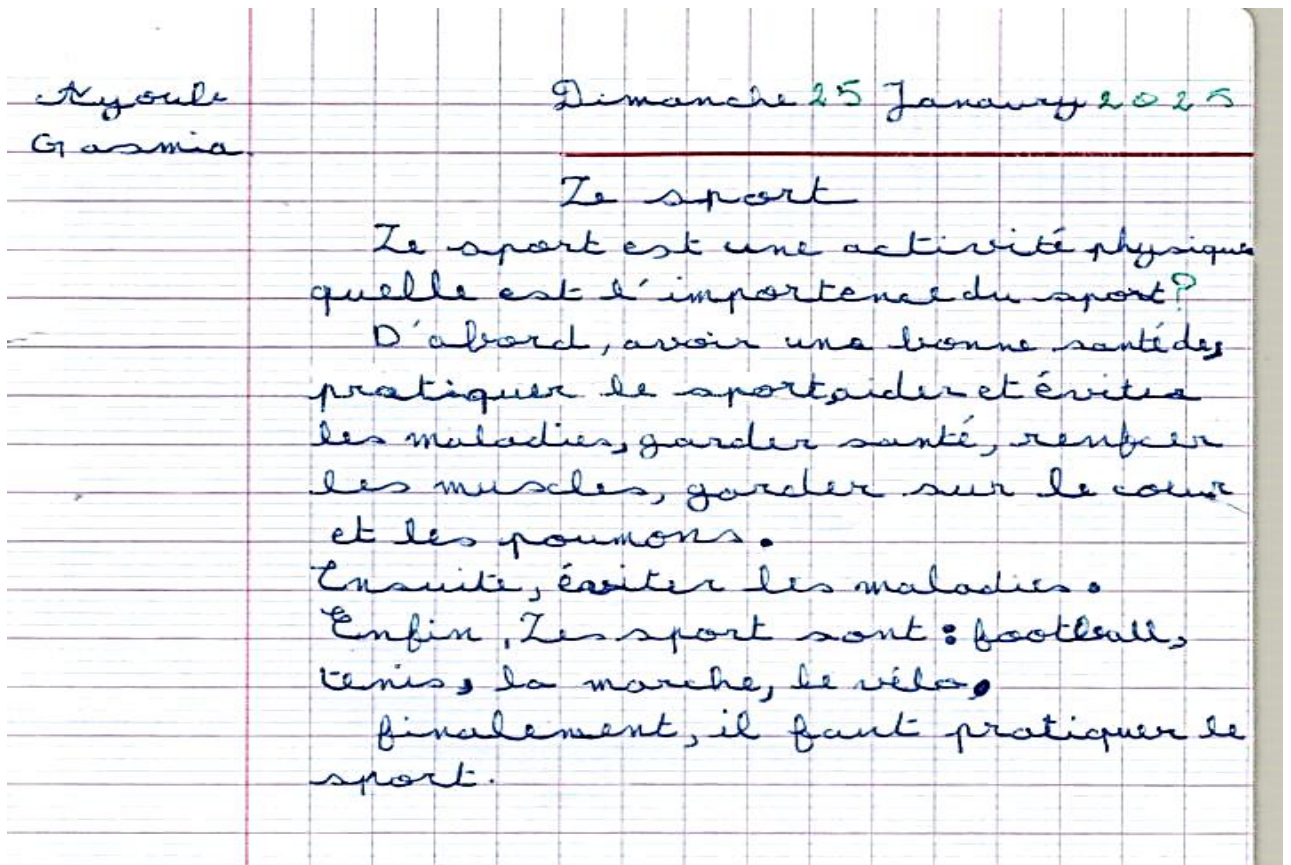 Ayoub Dimanche 25 Janaury 2025
Gasmia.
Le sport
Le sport est une activité physique
quelle est l'importence du sport?
D'abord, avoir une bonne santé des
pratiquer le sport, aider et évites
les maladies, garder santé, renfcer
les muscles, garder sur le cour
et les poumons.
Ensuite, éviter les maladies.
Enfin, Les sport sont : football,
tenis, la marche, le vélo,
finalement, il faut pratiquer le
sport.